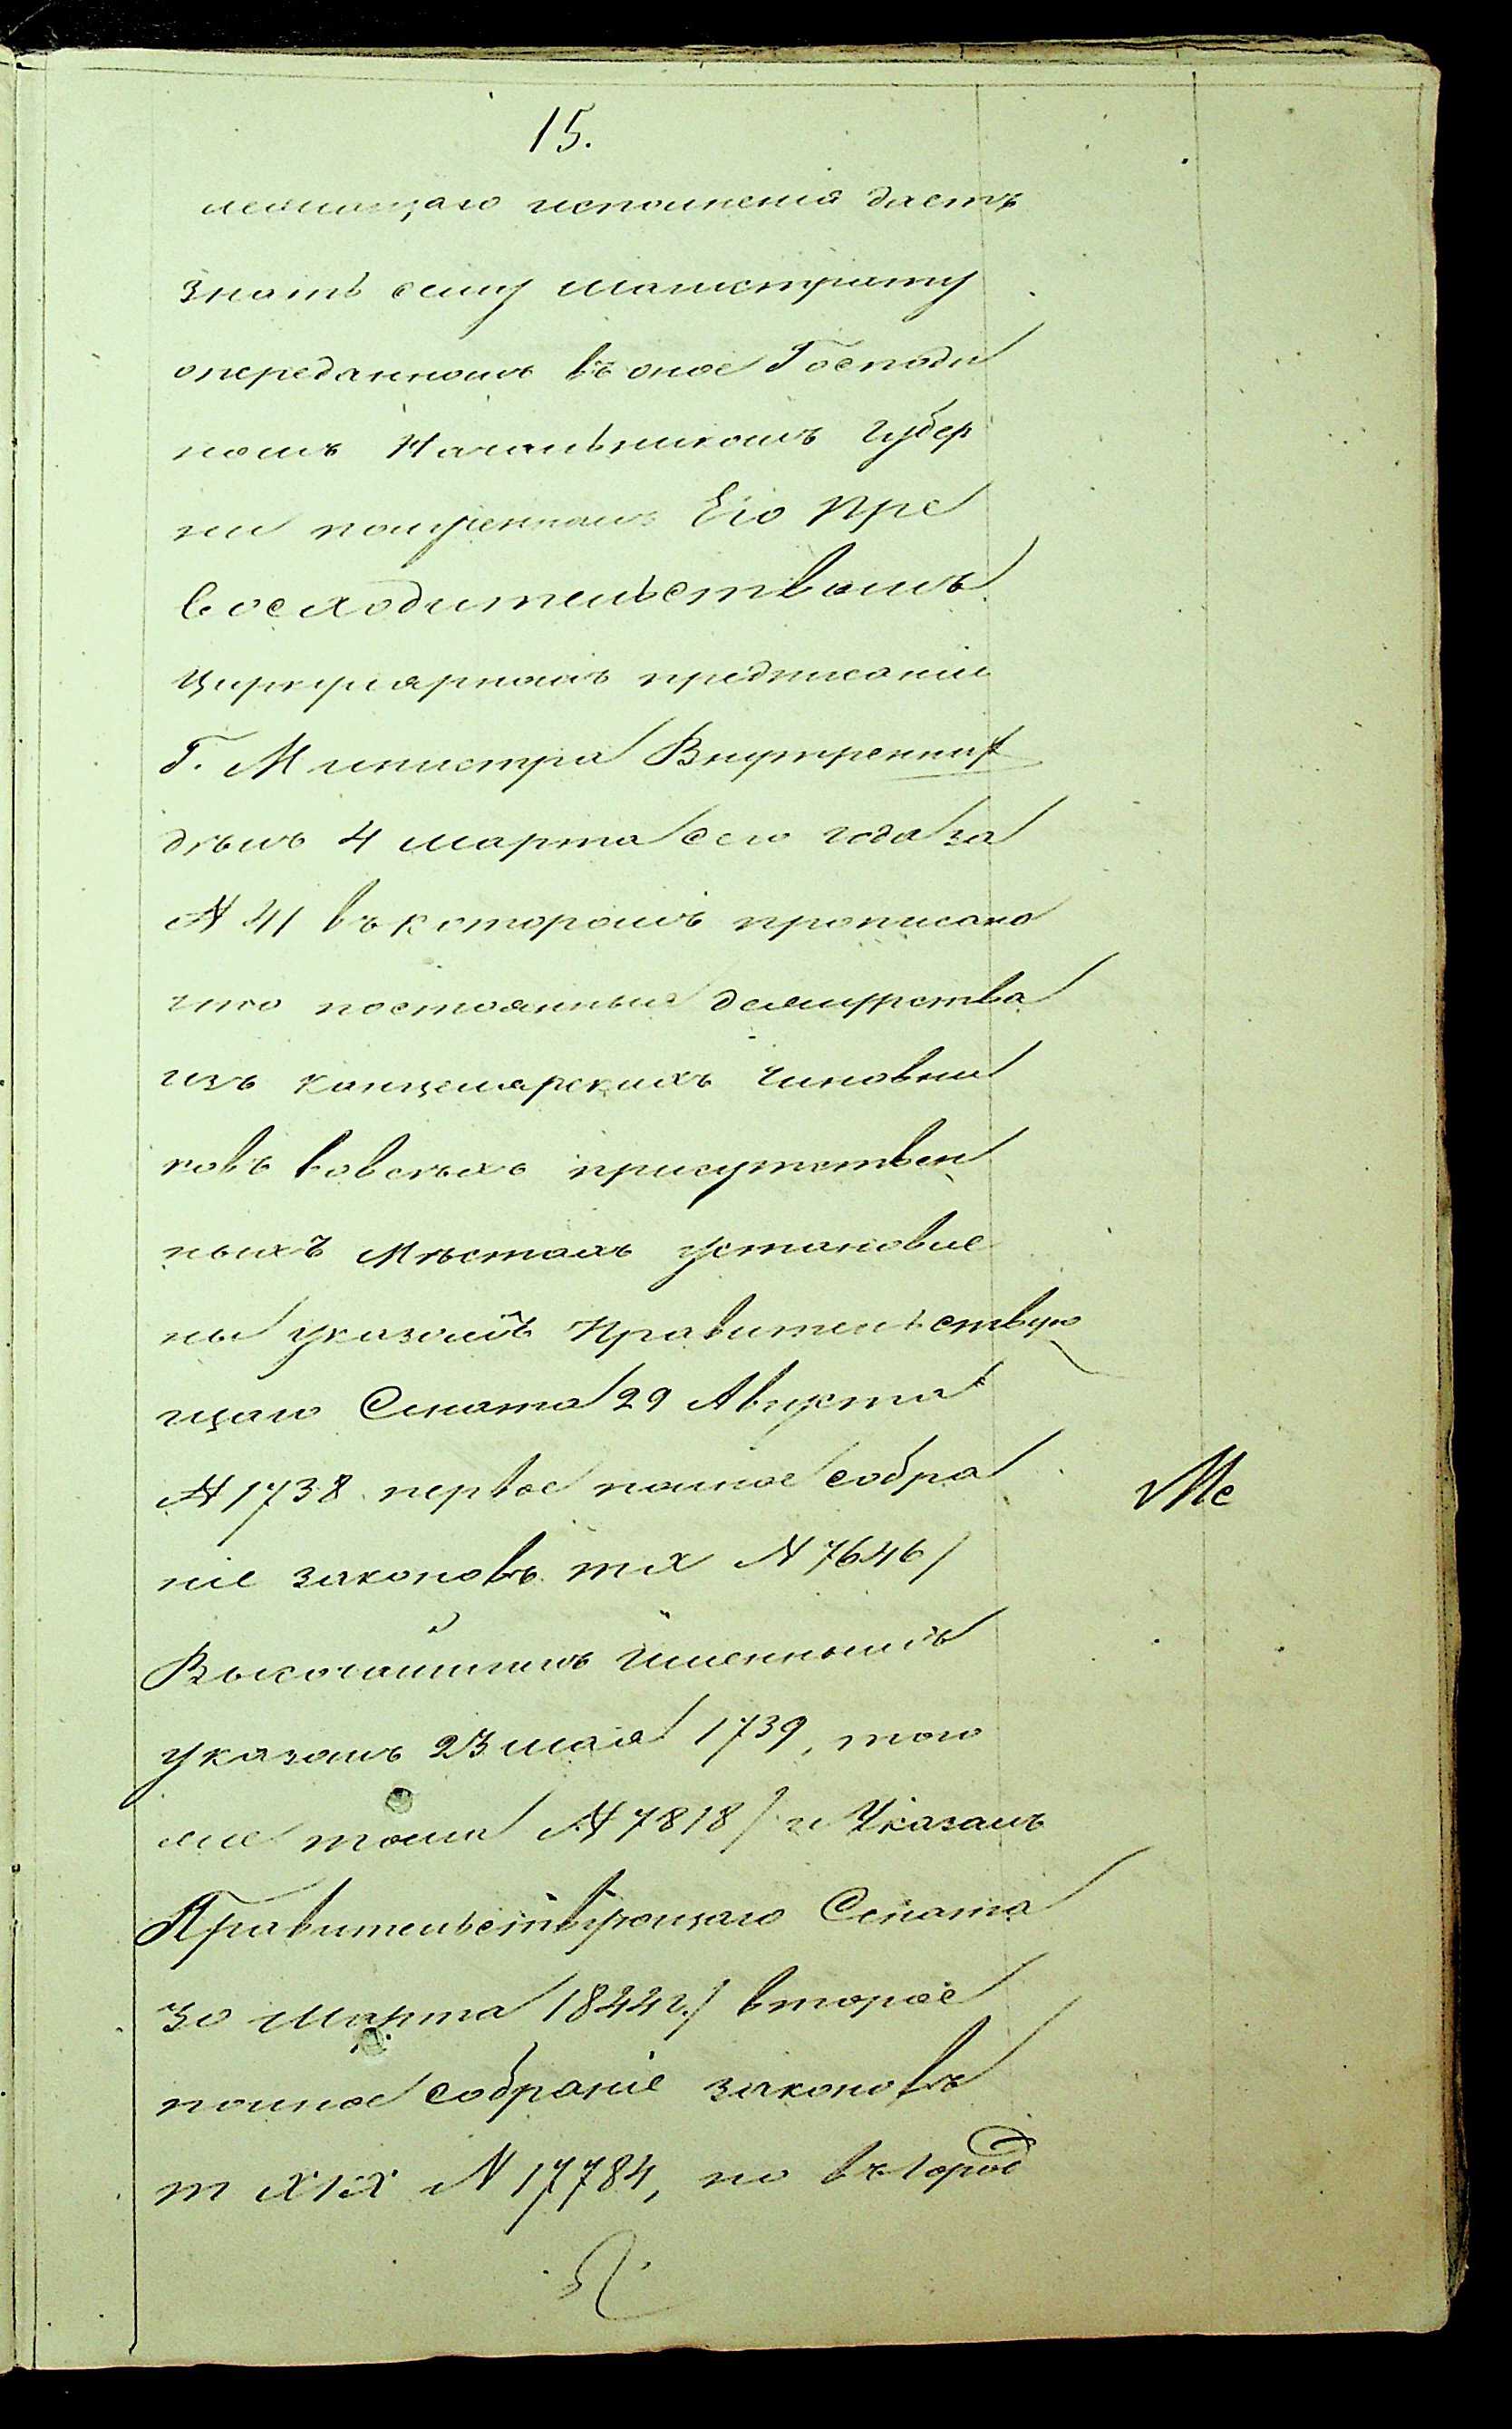 15.
лежащаго исполненія даетъ
знать сему магистрату
опереданномъ въ оное Господи
номъ Начальникомъ Губер
ніи полученномъ Его Пре
восходительствомъ
циркулярномъ предписаніи
Г. Министра Внутреннихъ
дѣлъ 4 марта сего года за
№ 41 въ которомъ прописано
что постоянныя дежурства
изъ канцелярскихъ Чиновни
ковъ вовсѣхъ присутствен
ныхъ Мѣстахъ установле
ны указомъ Правительствую
щаго Сената 29 Августа
№ 1738 первое полное собра
ніе законовъ т Х № 7646/
Высочайшимъ Имяннымъ
указомъ 23 мая 1739, того
же тома № 7818/ и Указомъ
Правительствующаго Сената
30 Марта 1844г./ второе
полное собраніе законовъ
т XIX № 17784, но въ город
Ме